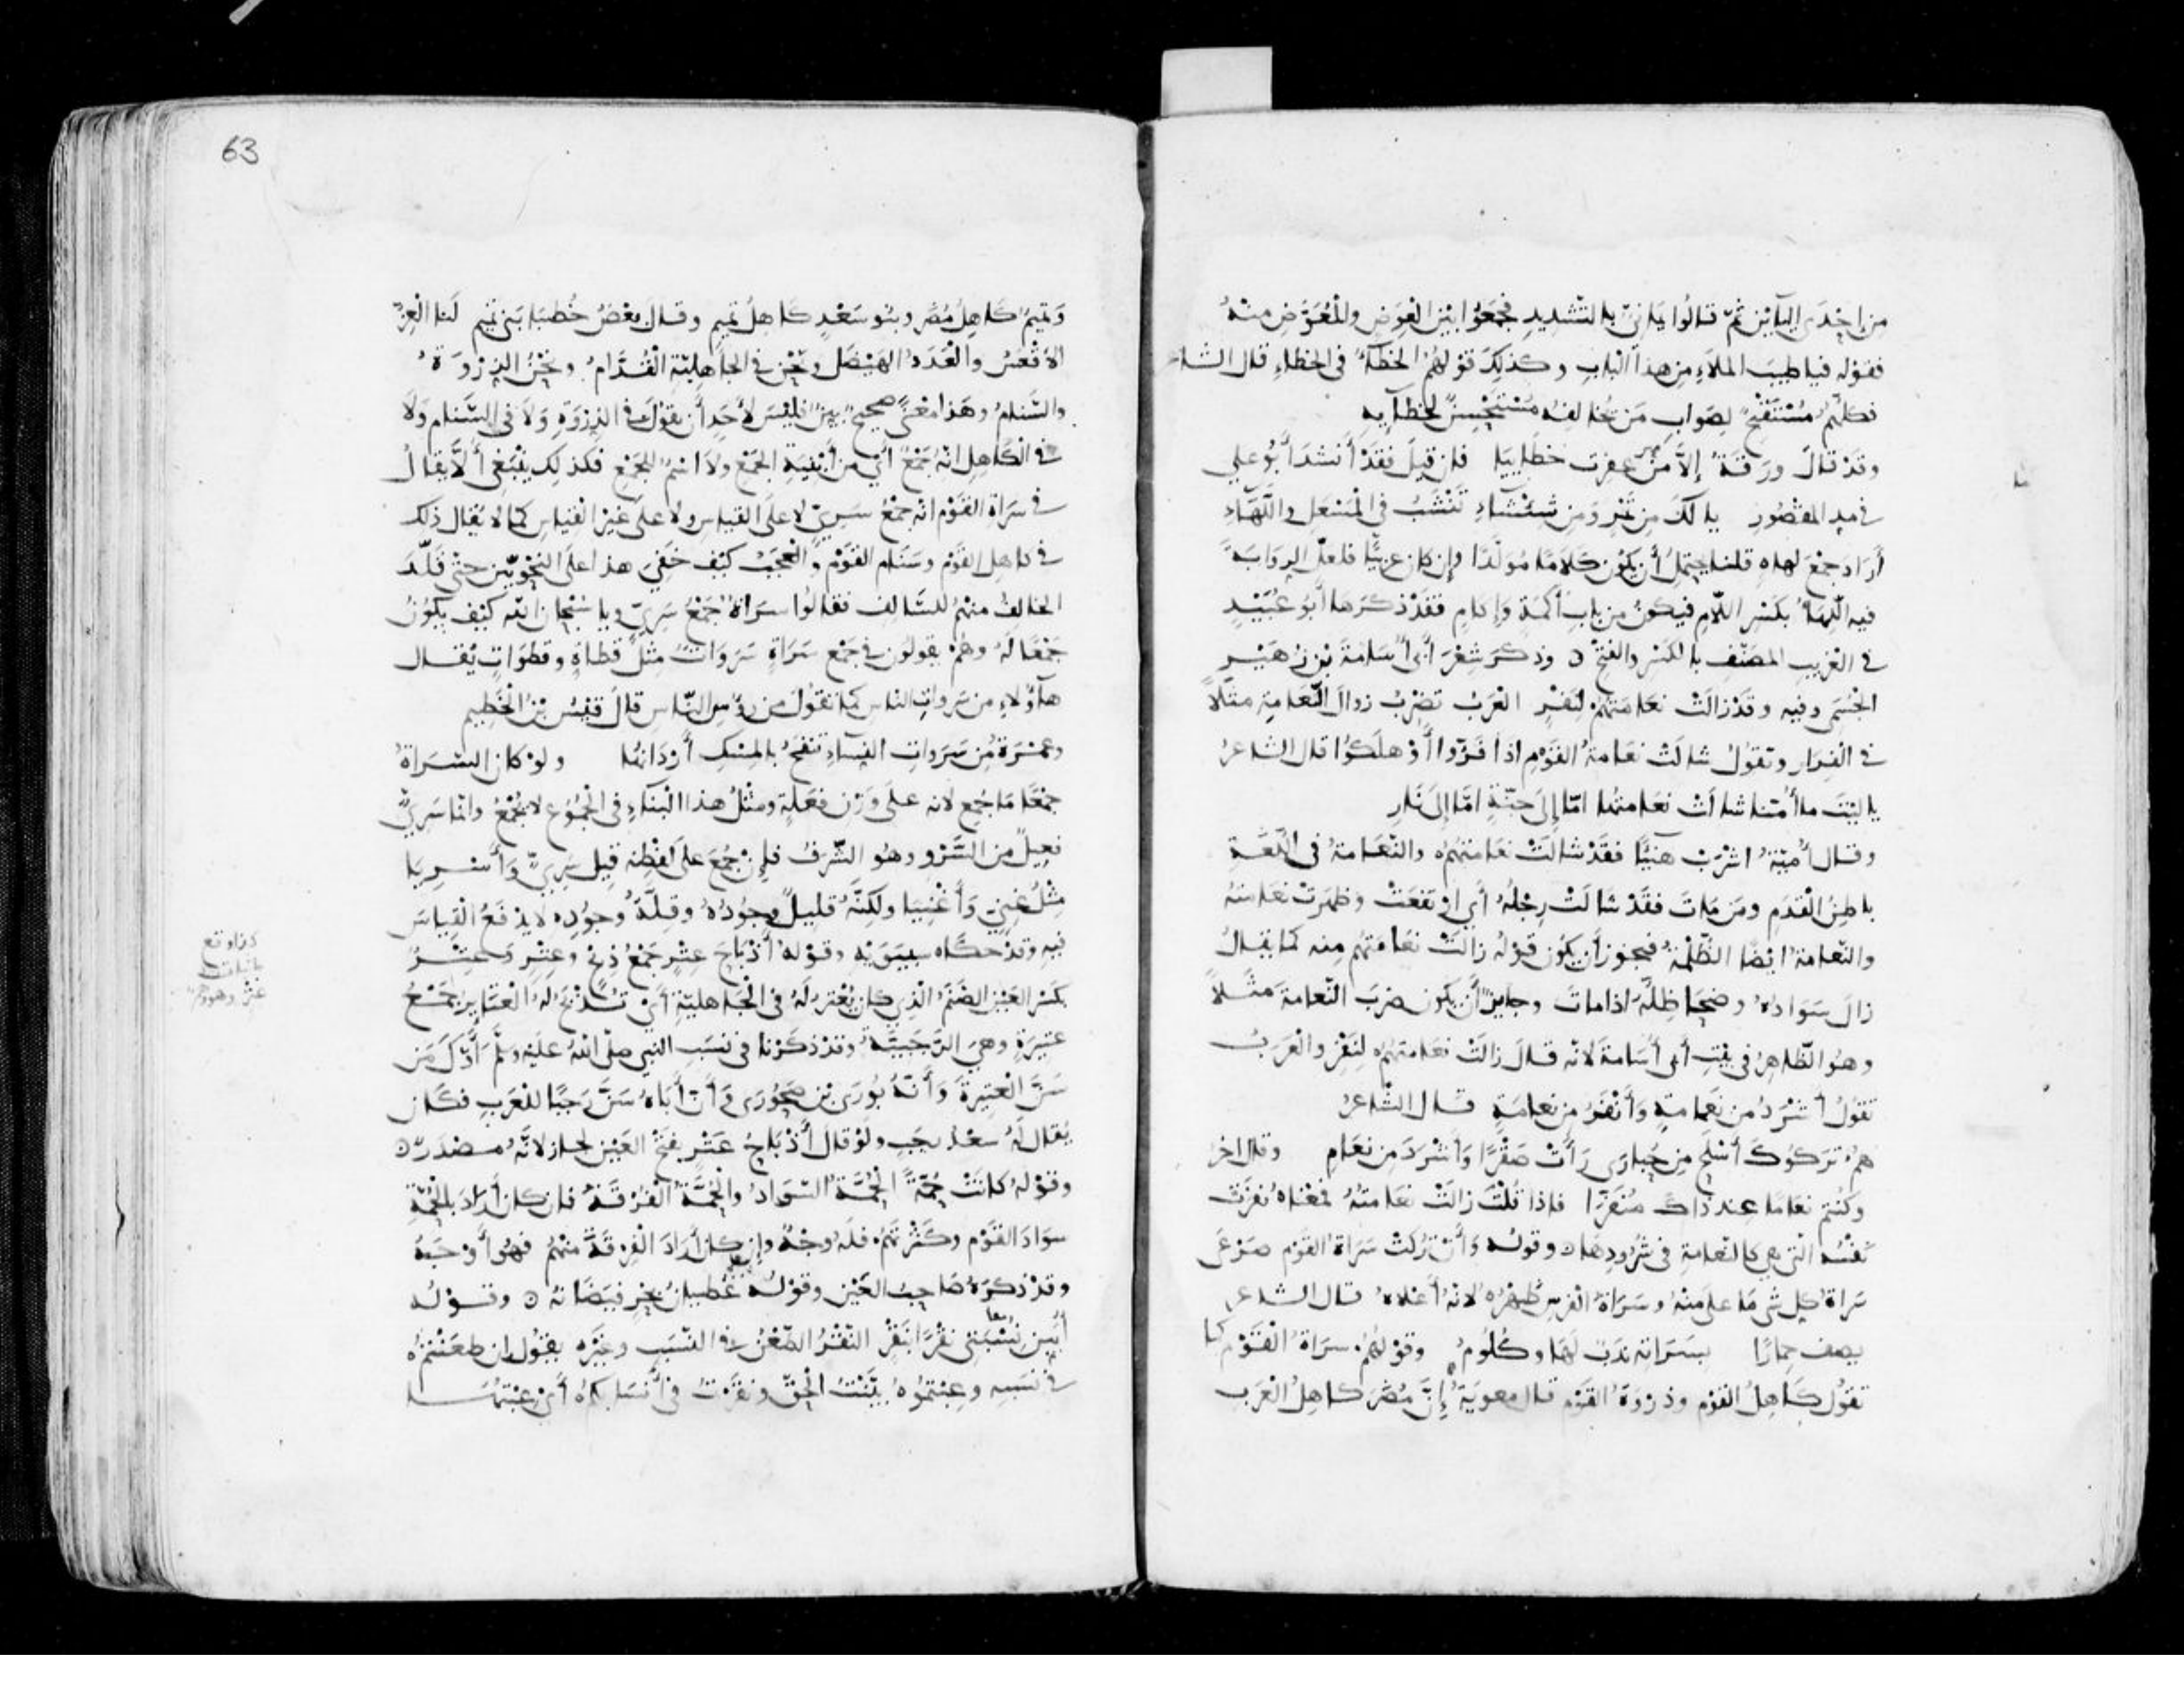 من احدى اليائين ثمّ قالوا يمانيّ بالتشديد فجمعوا بين العوض والمعوّض منه
فقوله فياطيب الملاء من هذا الباب وكذلك قولهم الخطاء في الخطاء قال الشاعر
فكلّهم مستقبح لصواب من يخالفه مستحسن لخطايه
وقد قال ورقة إلا من غفرت خطايا فان قيل فقد أنشد أبو علي
في مد المقصور يا لك من تمر ومن شيشاء تنشب في المسعل واللهاء
أراد جمع لهاه قلنا يحتمل أن يكون كلاما مولدا وإن كان عربيا فلعل الرواية
فيه اللهاء بكسر اللام فيكون من باب أكمة وإكام فقد ذكرها أبو عبيد
في الغريب المصنف بالكسر والفتح ٥ وذكر شعر أبي أسامة بن زهير
الجشمي وفيه وقد زالت نعامتهم لنفر العرب تضرب زوال النعامة مثلا
في الفرار وتقول شالت نعامة القوم اذا فروا أو هلكوا قال الشاعر
يا ليت ما أمنا شالت نعامتها امّا إلى جنّة امّا إلى نار
وقال أميّة اشرب هنيئا فقد شالت نعامتهم والنعامة في اللغة
باطن القدم ومن مات فقد شالت رجله أي ارتفعت وظهرت نعامته
والنعامة ايضا الظلمة فيجوز أن يكون قوله زالت نعامتهم منه كما يقال
زال سواده وضحا ظله اذا مات وجايز أن يكون ضرب النعامة مثلا
وهو الظاهر في بيت أبي أسامة لانه قال زالت نعامتهم لنفر والعرب
تقول أشرد من نعامة وأنفر من نعامة قال الشاعر
هم تركوك أسلح من حبارى رأت صقرا وأشرد من نعام وقال اخر
وكنتم نعاما عند ذاك منفرا فاذا قلت زالت نعامته فمعناه نفرت
نفسه التي هي كالنعامة في شرودها ٥ وقوله وأن تركت سراة القوم صرعى
سراة كل شي ما علا منه وسراة الفرس ظهره لانه أعلاه قال الشاعر
يصف حمارا بسراته ندب لها وكلوم وقولهم سراة القوم كما
تقول كاهل القوم وذروة القوم قال معوية إن مضر كاهل العرب
63
وتميم كاهل مضر وبنو سعد كاهل تميم وقال بعض خطبا بني تميم لنا العز
الاقعس والعدد الهيضل ونحن في الجاهلية القدام ونحن الذروة
والسنام وهذا معنى صحيح بين فليس لأحد أن يقول في الذروة ولا في السنام ولا
في الكاهل انه جمع أي من أبنية الجمع ولا اسم للجمع فكذلك ينبغي ألا يقال
في سراة القوم انه جمع سري لا على القياس ولا على غير القياس كما لا يقال ذلك
في كاهل القوم وسنام القوم والعجب كيف خفي هذا على النحويين حتى قلد
الخالف منهم للسالف فقالوا سراة جمع سري ويا سبحان الله كيف يكون
جمعا له وهم يقولون في جمع سراة سروات مثل قطاة وقطوات يقال
هاؤلاء من سروات الناس كما تقول من رؤس الناس قال قيس بن الخطيم
وعمرة من سروات النساء تنفح بالمسك أردانها ولو كان السراة
جمعا ما جمع لانه على وزن فعلة ومثل هذا البناء في الجموع لا يجمع وانما سري
فعيل من السرو وهو الشرف فإن جمع على لفظه قيل سري وأسريا
مثل غني وأغنيا ولكنه قليل وجوده وقلة وجوده لا يدفع القياس
فيه وقد حكاه سيبويه وقوله أذباح عتر جمع ذبح وعتر وعتر
بكسر العين الصنم الذي كان يعتر له في الجاهلية أي تذبح له العتاير جمع
عتيرة وهي الرجبية وقد ذكرنا في نسب النبي صلى الله عليه وسلم أول من
سن العتيرة وأنه بورى بن صحورى وأن أباه سن رجبا للعرب فكان
يقال له سعد رجب ولو قال أذباح عتر بفتح العين لجاز لانه مصدر ٥
وقوله كانت جمة الجمة السواد والجمة الفرقة فان كان أراد بالجمة
سواد القوم وكثرتهم فله وجه وإن كان أراد الفرقة منهم فهو أوجه
وقد ذكره صاحب العين وقوله غطيان بحر فيضانه ٥ وقوله
أبين نسبتي نقرا بنقر النقر الطعن في النسب وغيره يقول إن طعنتم
في نسبه وعبتموه بينت الحق ونقرت في أنسابكم أي عبتها